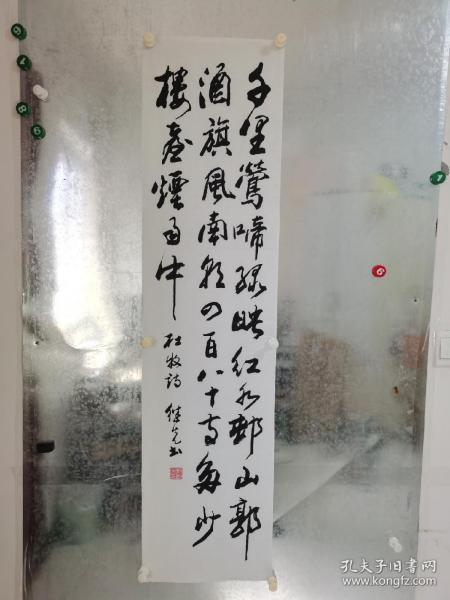 千里莺啼绿映红水邨山郭
酒旗风南朝四百八十寺多少
楼台烟雨中
杜牧诗 继先书
孔夫子旧书网
www.kongfz.com
6
7
8
9
6
1